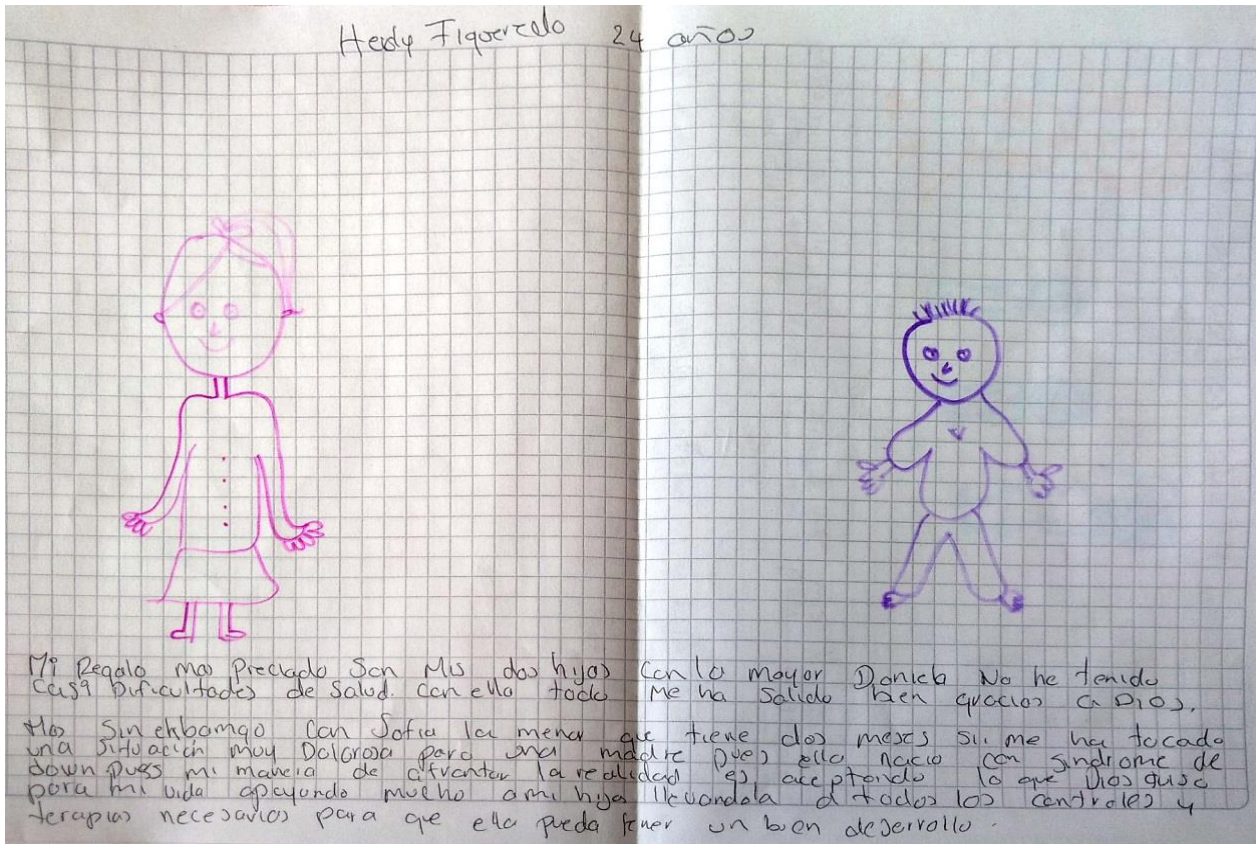 Heidy Figueredo 24 años
Mi Regalo mas Preciado Son Mis dos hijas Con la mayor Daniela No he tenido
Casa Dificultades de Salud. Con ella todo Me ha Salido bien gracias a DIOS.
Mas Sin ekbamgo Con Sofia la menor que tiene dos meses Si. me ha tocado
una Situación muy Dolorosa para una madre pues ella nacio con Sindrome de
down pues mi maneia de afrontar la realidad es aceptando lo que Dios quiso
para mi vida apoyando mucho a mi hija llevandola a todos los controles y
terapias necesarios para que ella pueda tener un buen desarrollo.